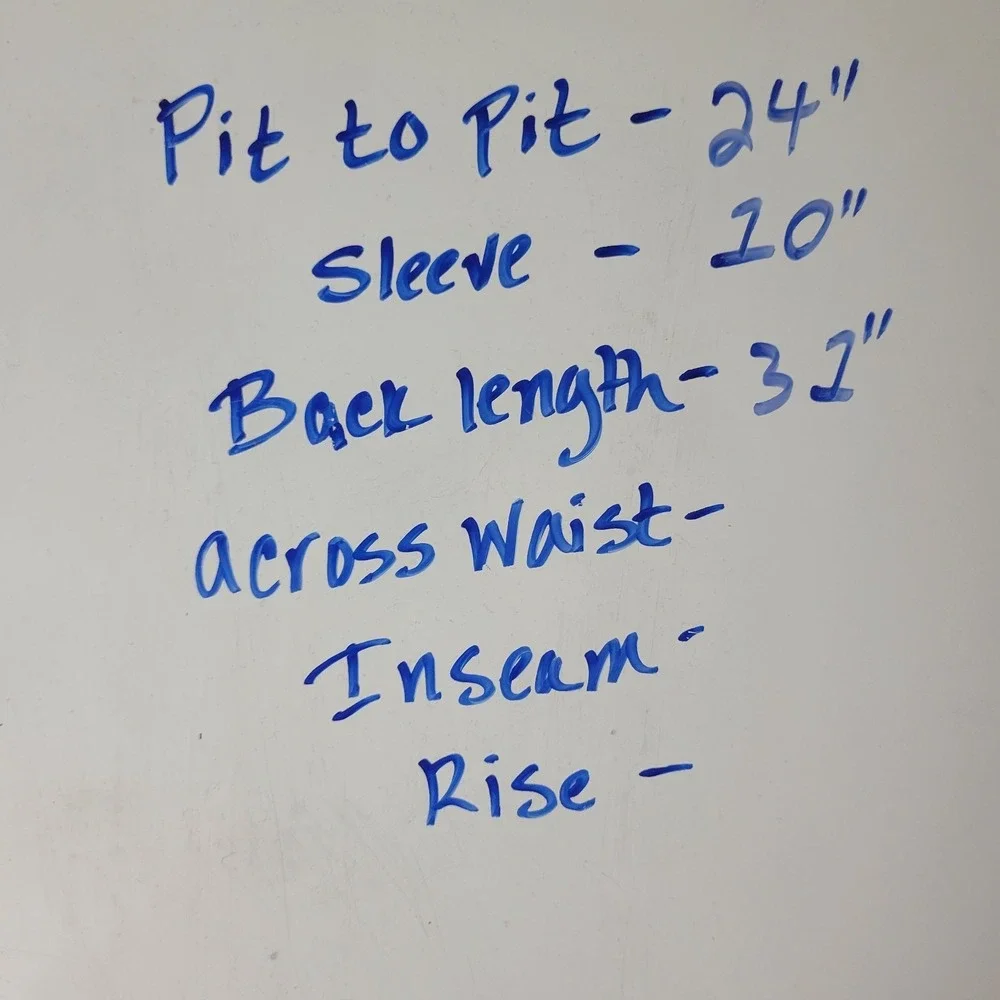 Pit to Pit - 24"
Sleeve - 10"
Back length - 31"
across Waist -
Inseam -
Rise -